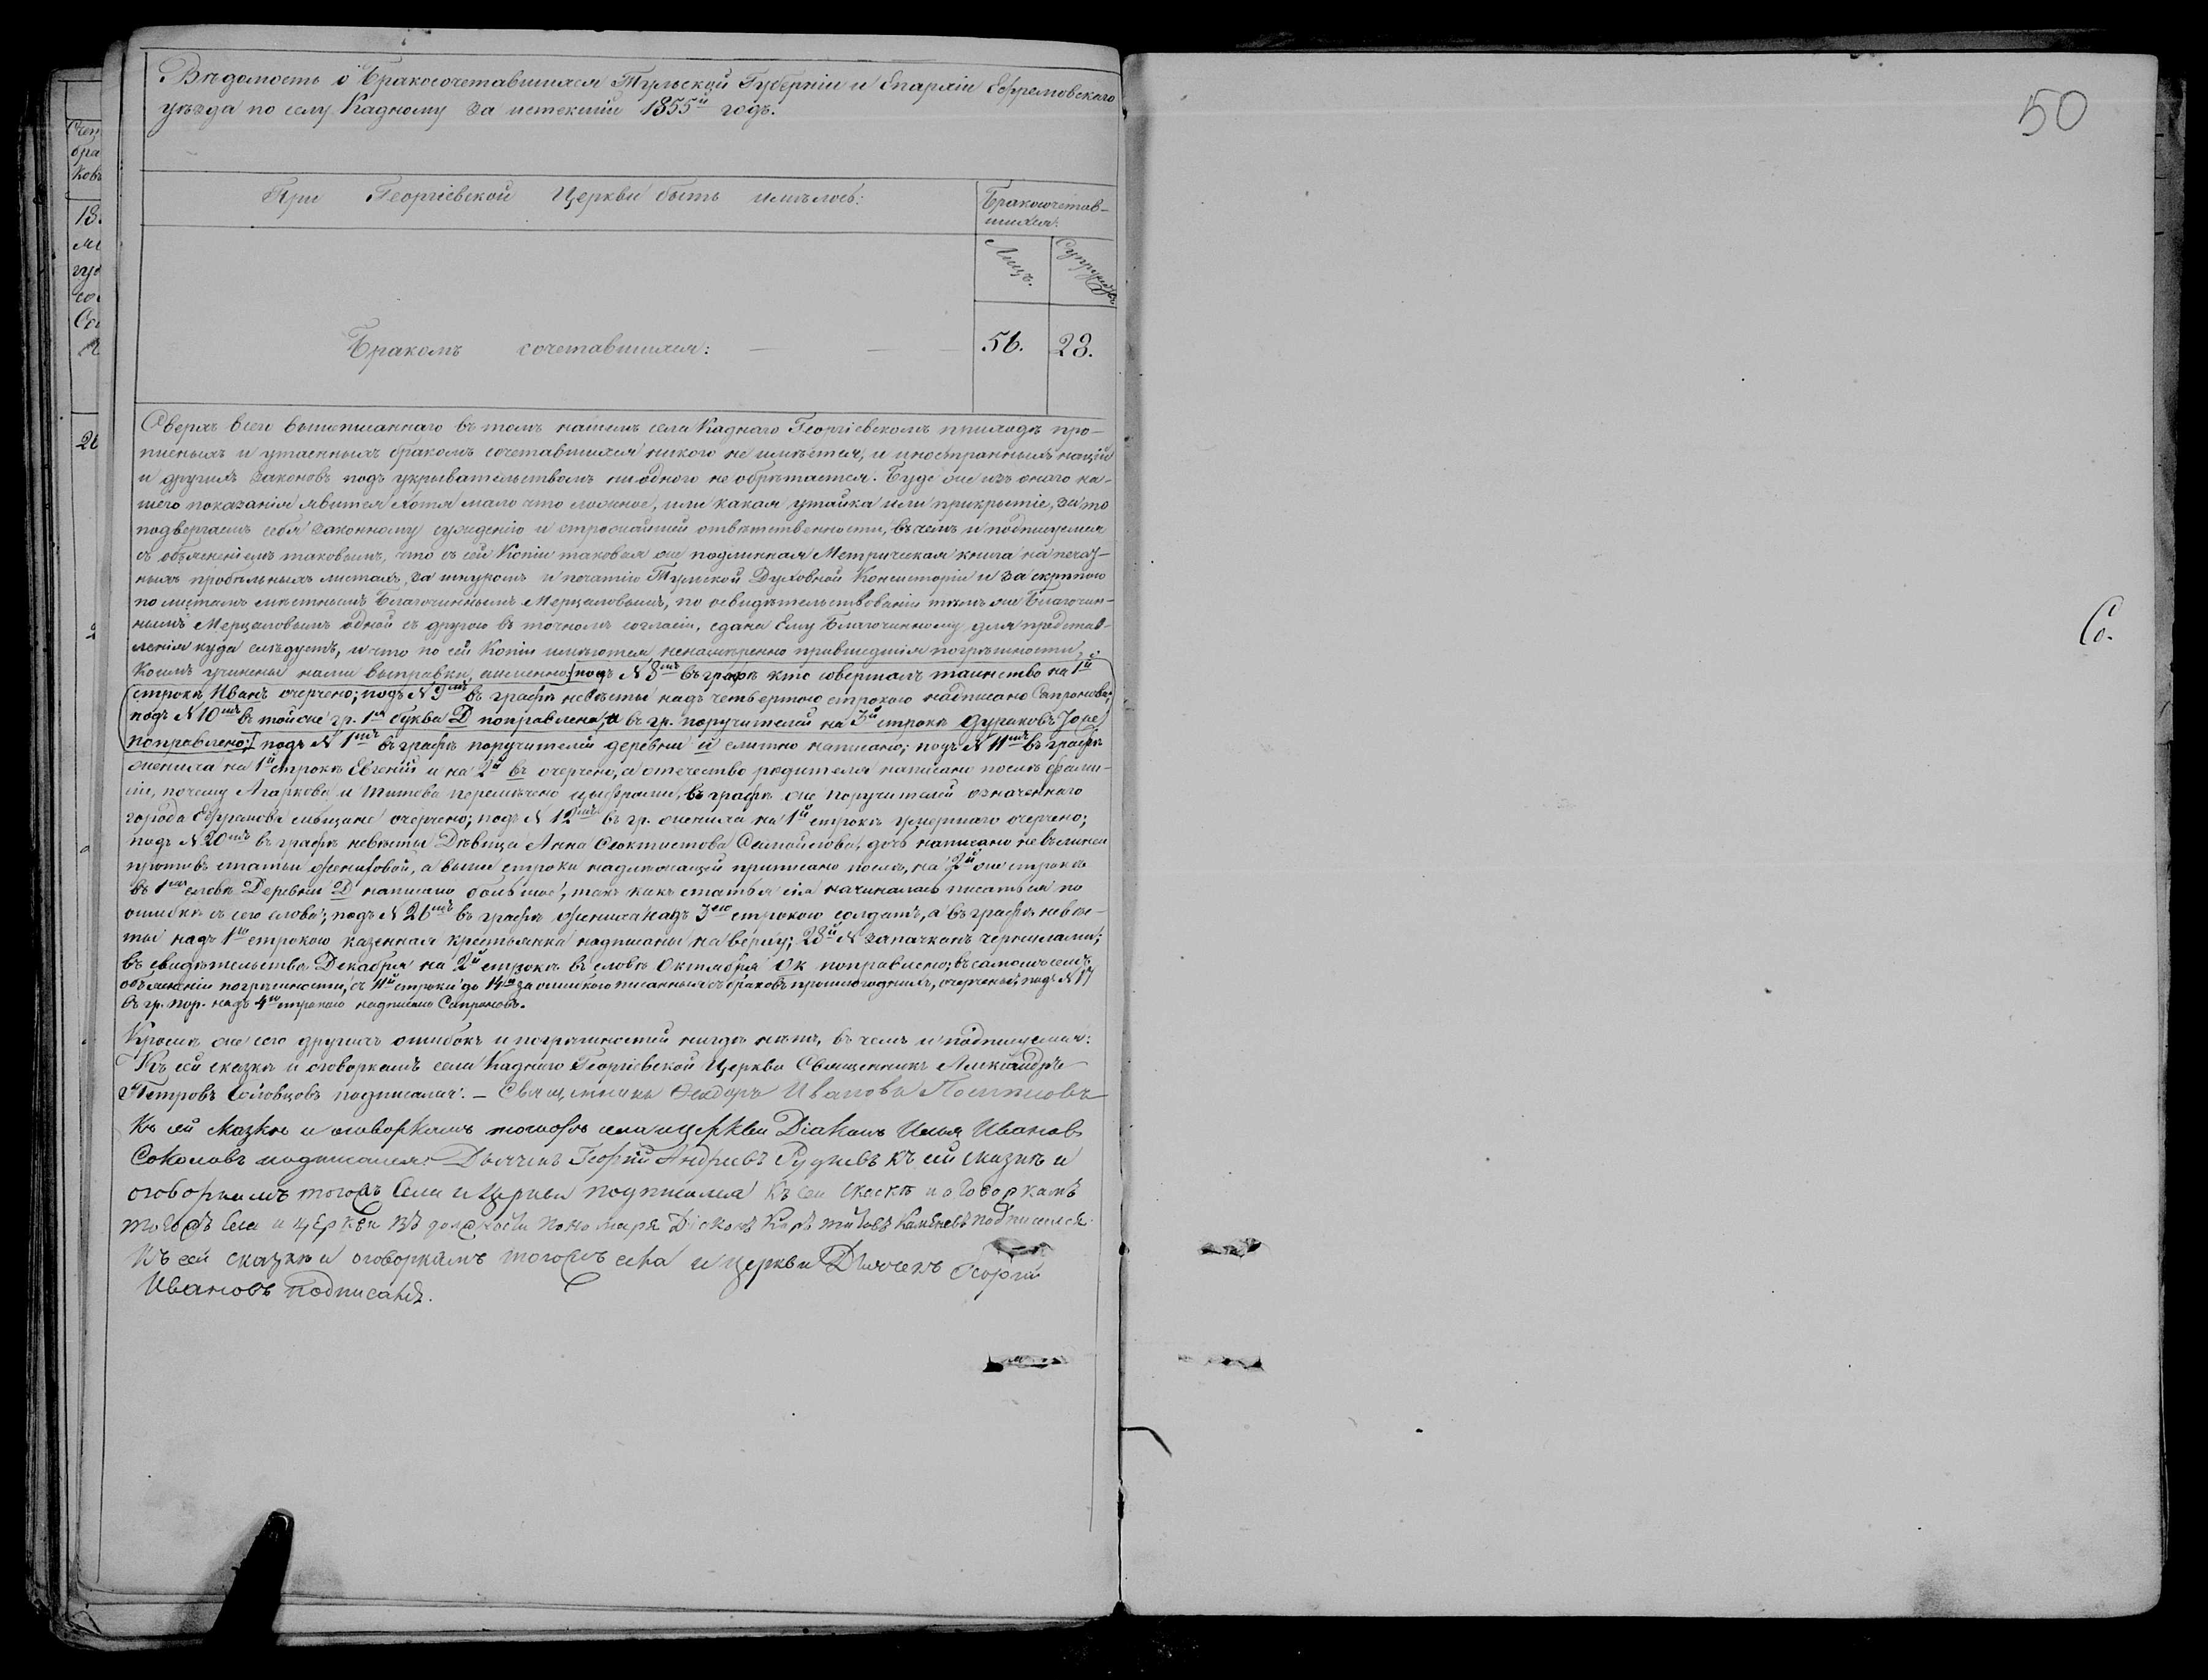 Вѣдомость о Бракосочетавшихся Тульской Губерніи и Епархіи Ефремовскаго
уѣзда по селу Кадному за истекшій 1855й годъ.
50
При Георгіевской Церкви быть имѣлось:
Бракосочетав-
шихся:
Лицъ.
Супружествъ
Бракомъ сочетавшихся: — — —
56.
28.
Сверхъ всего вышеписаннаго въ томъ нашемъ села Каднаго Георгіевскомъ приходѣ про-
писныхъ и утаенныхъ бракомъ сочетавшихся никого не имѣется, и иностранныхъ націй
и другихъ законовъ подъ укрывательствомъ ни одного не обрѣтается. Буде же изъ онаго на-
шего показанія явится хотя мало что ложное, или какая утайка или прикрытіе, за то
подвергаемъ себя законному сужденію и строжайшей отвѣтственности, въ чемъ и подписуемся
съ объясненіемъ таковымъ, что съ сей Копіи таковая же подлинная Метрическая книга на печат-
ныхъ пробѣльныхъ листахъ, за шнуромъ и печатію Тульской Духовной Консисторіи и за скрѣпою
по листамъ мѣстнымъ Благочиннымъ Мерцаловымъ, по освидѣтельствованіи тѣмъ же Благочин-
нымъ Мерцаловымъ одной съ другою въ точномъ согласіи, сдана Ему Благочинному для представ-
ленія куда слѣдуетъ, и что по сей Копіи имѣются ненамѣренно пришедшія погрѣшности,
Коимъ учинены нами выправки, а именно: подъ № 8мъ въ графѣ кто совершалъ таинство на 1й
строкѣ Иванъ очерчено; подъ № 9мъ въ графѣ невѣсты надъ четвертою строкою надписано Сапронова;
подъ № 10мъ въ той же гр. 1я буква Д поправлена, а въ гр. поручителей на 3й строкѣ
поправлено; подъ № 1мъ въ графѣ поручителей деревни и слитно написано; подъ № 11мъ въ графѣ
жениха на 1й строкѣ Евгеній и на 2й въ очерчено, а отечество родителя написано послѣ фами-
ліи, почему Агаркова и Титова перемѣчено цыфрами, въ графѣ же поручителей означеннаго
города Ефремова мѣщане очерчено; подъ № 12мъ въ гр. жениха на 1й строкѣ умершаго очерчено;
подъ № 20мъ въ графѣ невѣсты Дѣвица Анна Ѳеоктистова Самойлова, дочь написано не въ линеи
противъ статьи жениховой, а выше строки надлежащей приписано послѣ, на 2й же строкѣ
въ 1мъ словѣ Деревни Д написано большое, такъ какъ статья сія начиналась писаться по
ошибкѣ съ сего слова; подъ № 26мъ въ графѣ жениха надъ 3ею строкою солдатъ, а въ графѣ невѣс-
ты надъ 1ю строкою казенная крестьянка надписаны на верху; 28й № запачканъ чернилами;
въ свидѣтельствѣ Декабря на 2й строкѣ въ словѣ Октября Ок поправлено; въ самомъ семъ
объясненіи погрѣшности, съ 11й строки до 14й за ошибкою писанныя съ браковъ прошлогоднихъ, очерчены; подъ № 17
въ гр. пор. надъ 4ю строкою надписано Сапроновъ.
Кромѣ же сего другихъ ошибокъ и погрѣшностей нигдѣ нѣтъ, въ чемъ и подписуемся:
Къ сей сказкѣ и оговоркамъ села Каднаго Георгіевской Церкви Священникъ Александръ
Петровъ Соловцовъ подписался. — Священникъ Ѳеодоръ Ивановъ
Къ сей сказкѣ и оговоркамъ тогожъ села и церкви Діаконъ Илья Ивановъ
Соколовъ подписался. Дьячекъ Георгій Андреевъ Рудневъ къ сей сказкѣ и
оговоркамъ тогожъ села и церкви подписался Къ сей скаскѣ и оговоркамъ
тогожъ села и церкви въ должности пономаря Діаконъ Титовъ Каменевъ подписался
Къ сей сказкѣ и оговоркамъ тогожъ села и церкви Дьячекъ Георгій
Ивановъ подписался.
Со.